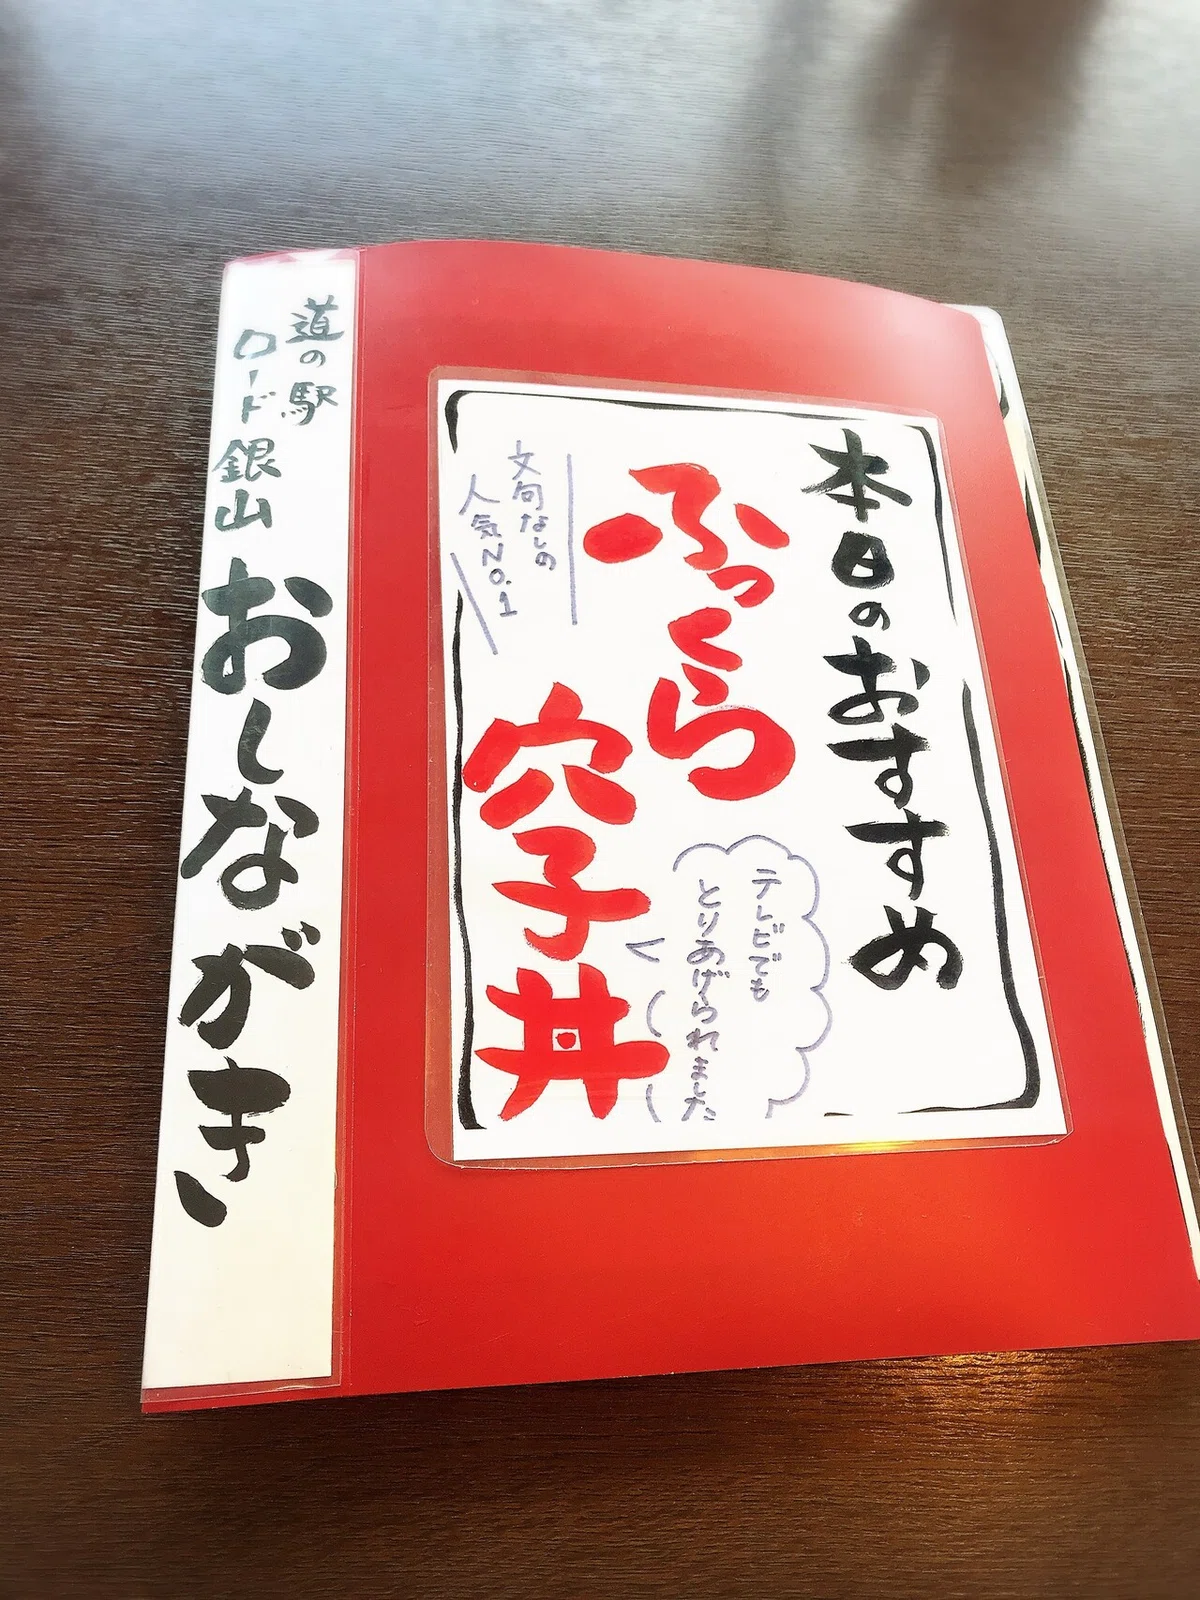 道の駅
ロード銀山
おしながき
本日のおすすめ
ふっくら
穴子丼
文句なしの
人気No.1
テレビでも
とりあげられました